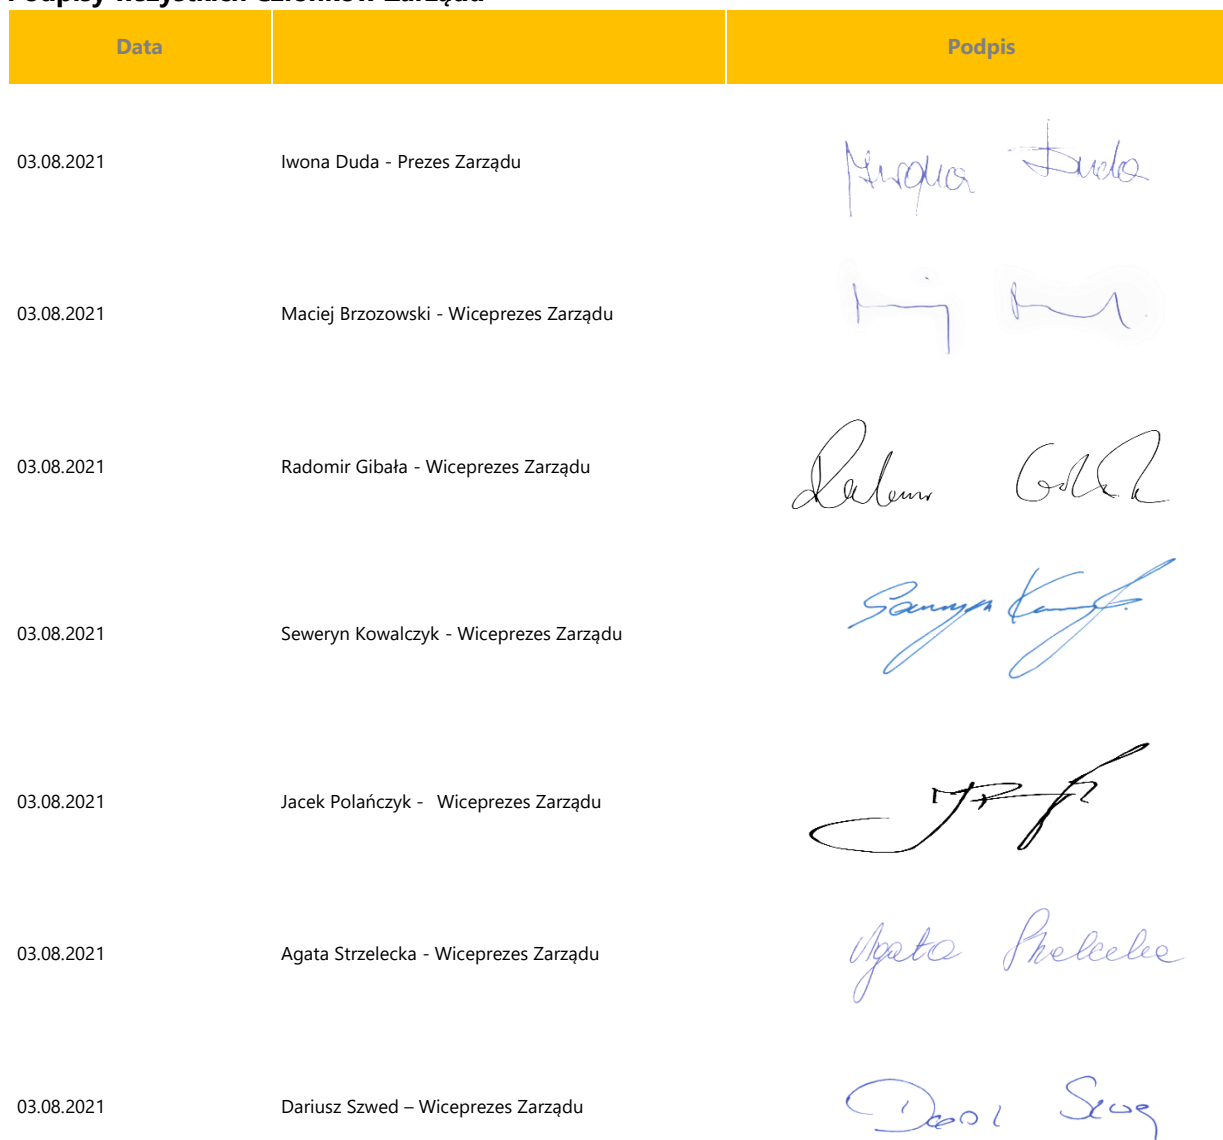 Podpisy wszystkich Członków Zarządu
Data Podpis
03.08.2021 Iwona Duda - Prezes Zarządu Iwona Duda
03.08.2021 Maciej Brzozowski - Wiceprezes Zarządu
03.08.2021 Radomir Gibała - Wiceprezes Zarządu
03.08.2021 Seweryn Kowalczyk - Wiceprezes Zarządu
03.08.2021 Jacek Polańczyk - Wiceprezes Zarządu
03.08.2021 Agata Strzelecka - Wiceprezes Zarządu Agata Strzelecka
03.08.2021 Dariusz Szwed – Wiceprezes Zarządu